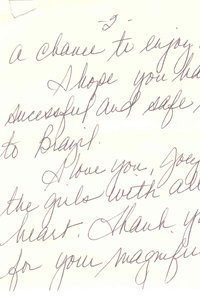 -2-
a chance to enjoy.
I hope you ha
sucessful and safe
to Brazil.
I love you, Joey
the girls with all
heart. Thank y
for your magnifi